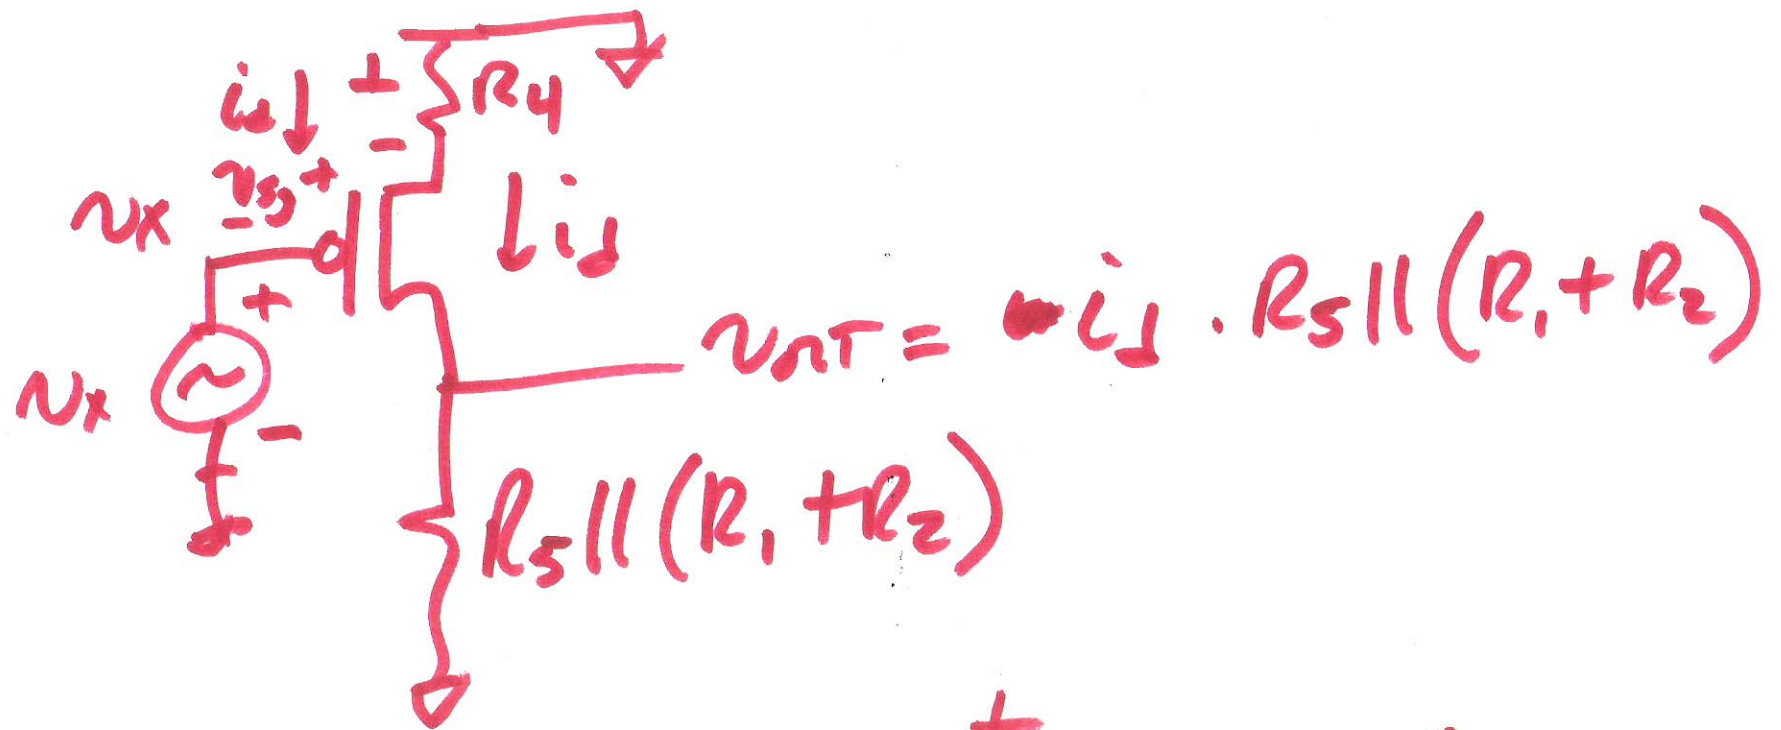 +
R4
id
-
vsg +
-
vx
id
+
vx
-
vout = id · R5||(R1+R2)
R5||(R1+R2)
+